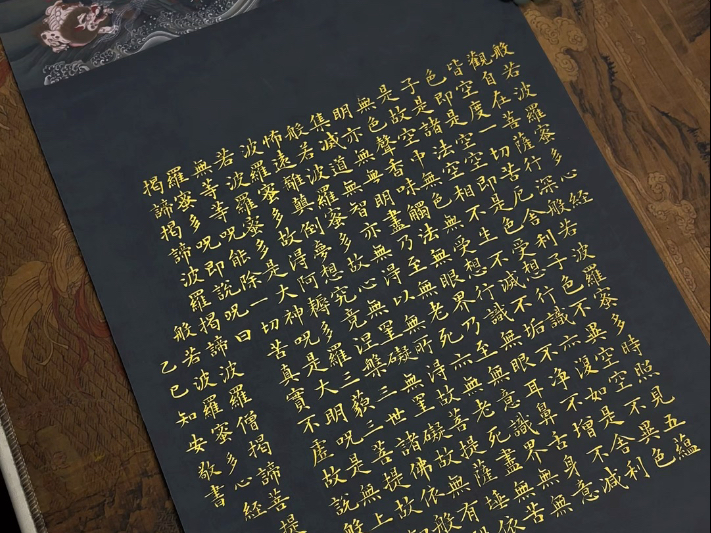 般若波羅蜜多心經
觀自在菩薩行深般若波羅蜜多時照見五蘊
皆空度一切苦厄舍利子色不異空空不異色
色即是空空即是色受想行識亦復如是舍利
子是諸法空相不生不滅不垢不淨不增不減
是故空中無色無受想行識無眼耳鼻舌身意
無色聲香味觸法無眼界乃至無意識界無無
明亦無無明盡乃至無老死亦無老死盡無苦
集滅道無智亦無得以無所得故菩提薩埵依
般若波羅蜜多故心無罣礙無罣礙故無有
怖遠離顛倒夢想究竟涅槃三世諸佛依般
波羅蜜多故得阿耨多羅三藐三菩提故
若波羅蜜多是大神呪是大明呪是無上
無等等呪能除一切苦真實不虛故說般
羅蜜多呪即說呪曰
揭諦揭諦波羅揭諦波羅僧揭諦菩提
般若波羅蜜多心經
己巳知安敬書